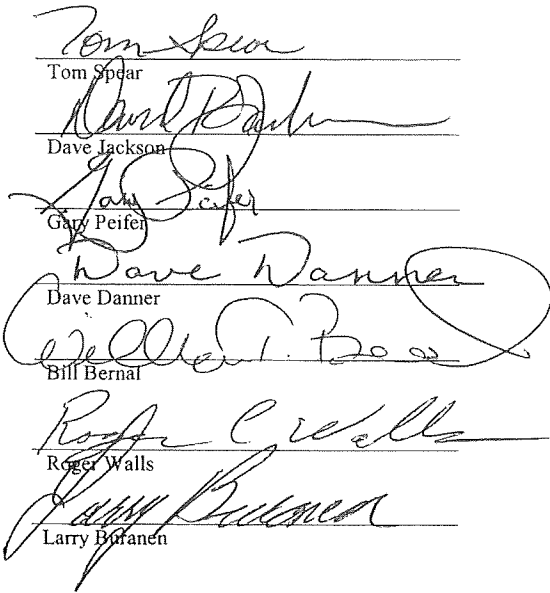 Tom Spear
Tom Spear
Dave Jackson
Gary Peifer
Gary Peifer
Dave Danner
Dave Danner
William T.
Bill Bernal
Roger C Walls
Roger Walls
Larry Buranen
Larry Buranen